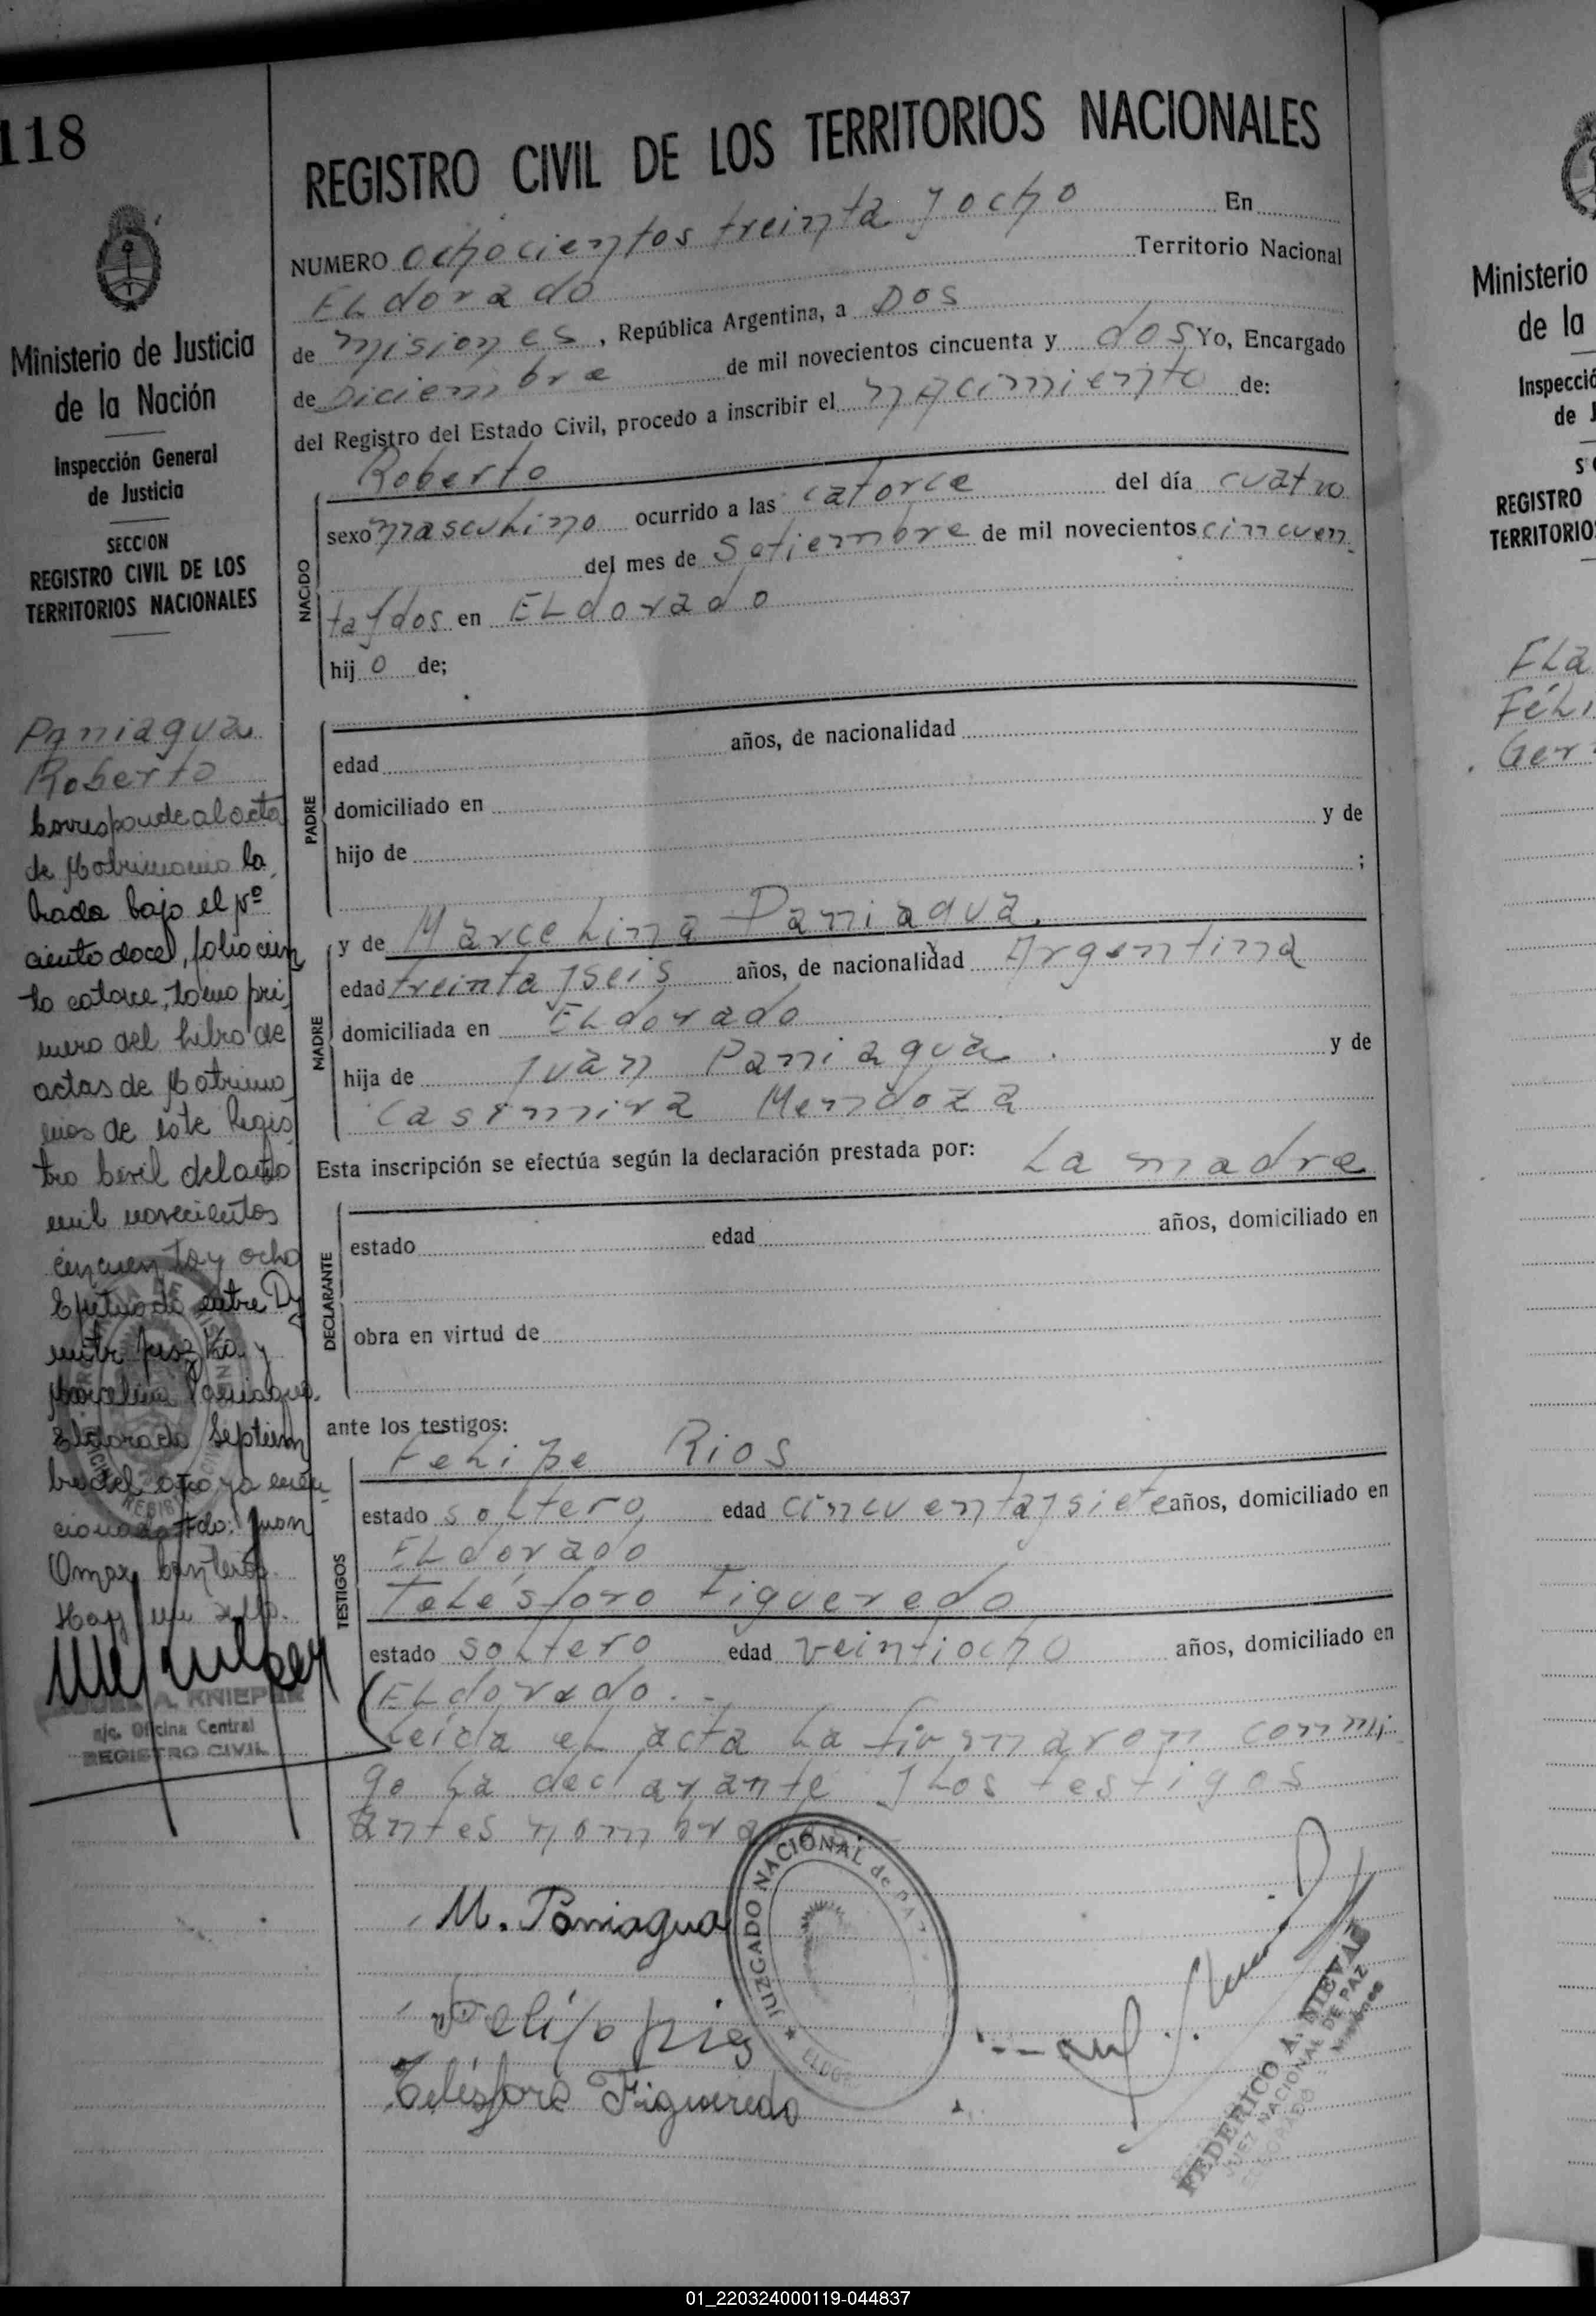 118
Ministerio de Justicia
de la Nación
Inspección General
de Justicia
SECCION
REGISTRO CIVIL DE LOS
TERRITORIOS NACIONALES
Paniagua
Roberto
Corresponde al acta
de Matrimonio la
brada bajo el Nº
ciento doce, folio cien
to catorce, tomo pri
mero del Libro de
actas de Matrimo
nios de este Regis
tro Civil del año
mil novecientos
cincuenta y ocho
Efectuado entre Dy
y
Marcelina Paniagua.
Eldorado Septiem
bre del año ya men
cionado. Fdo: Juan
Omar
Hay un sello.
A. KNIEPER
a/c. Oficina Central
REGISTRO CIVIL
REGISTRO CIVIL DE LOS TERRITORIOS NACIONALES
NUMERO ochocientos treinta y ocho En
ELdorado Territorio Nacional
de misiones, República Argentina, a Dos
de Diciembre de mil novecientos cincuenta y dos Yo, Encargado
del Registro del Estado Civil, procedo a inscribir el nacimiento de:
Roberto
NACIDO
sexo masculino ocurrido a las catorce del día cuatro
del mes de Setiembre de mil novecientos cincuen
ta y dos en ELdorado
hij o de;
PADRE
edad años, de nacionalidad
domiciliado en
hijo de y de
;
MADRE
y de Marcelina Paniagua.
edad treinta y seis años, de nacionalidad Argentina
domiciliada en ELdorado
hija de Juan Paniagua. y de
Casimira Mendoza
Esta inscripción se efectúa según la declaración prestada por: La madre
DECLARANTE
estado edad años, domiciliado en
obra en virtud de
ante los testigos:
TESTIGOS
Felipe Rios
estado soltero edad cincuenta y siete años, domiciliado en
ELdorado
Telésforo Figueredo
estado soltero edad veintiocho años, domiciliado en
ELdorado.-
Leída el acta la firmaron conmi
go la declarante y los testigos
antes nombrados.
M. Paniagua
JUZGADO NACIONAL de PAZ
Telésforo Figueredo
FEDERICO A. NIEVAS
JUEZ NACIONAL DE PAZ
ELDORADO - Misiones
Ministerio
de la
REGISTRO
01_220324000119-044837